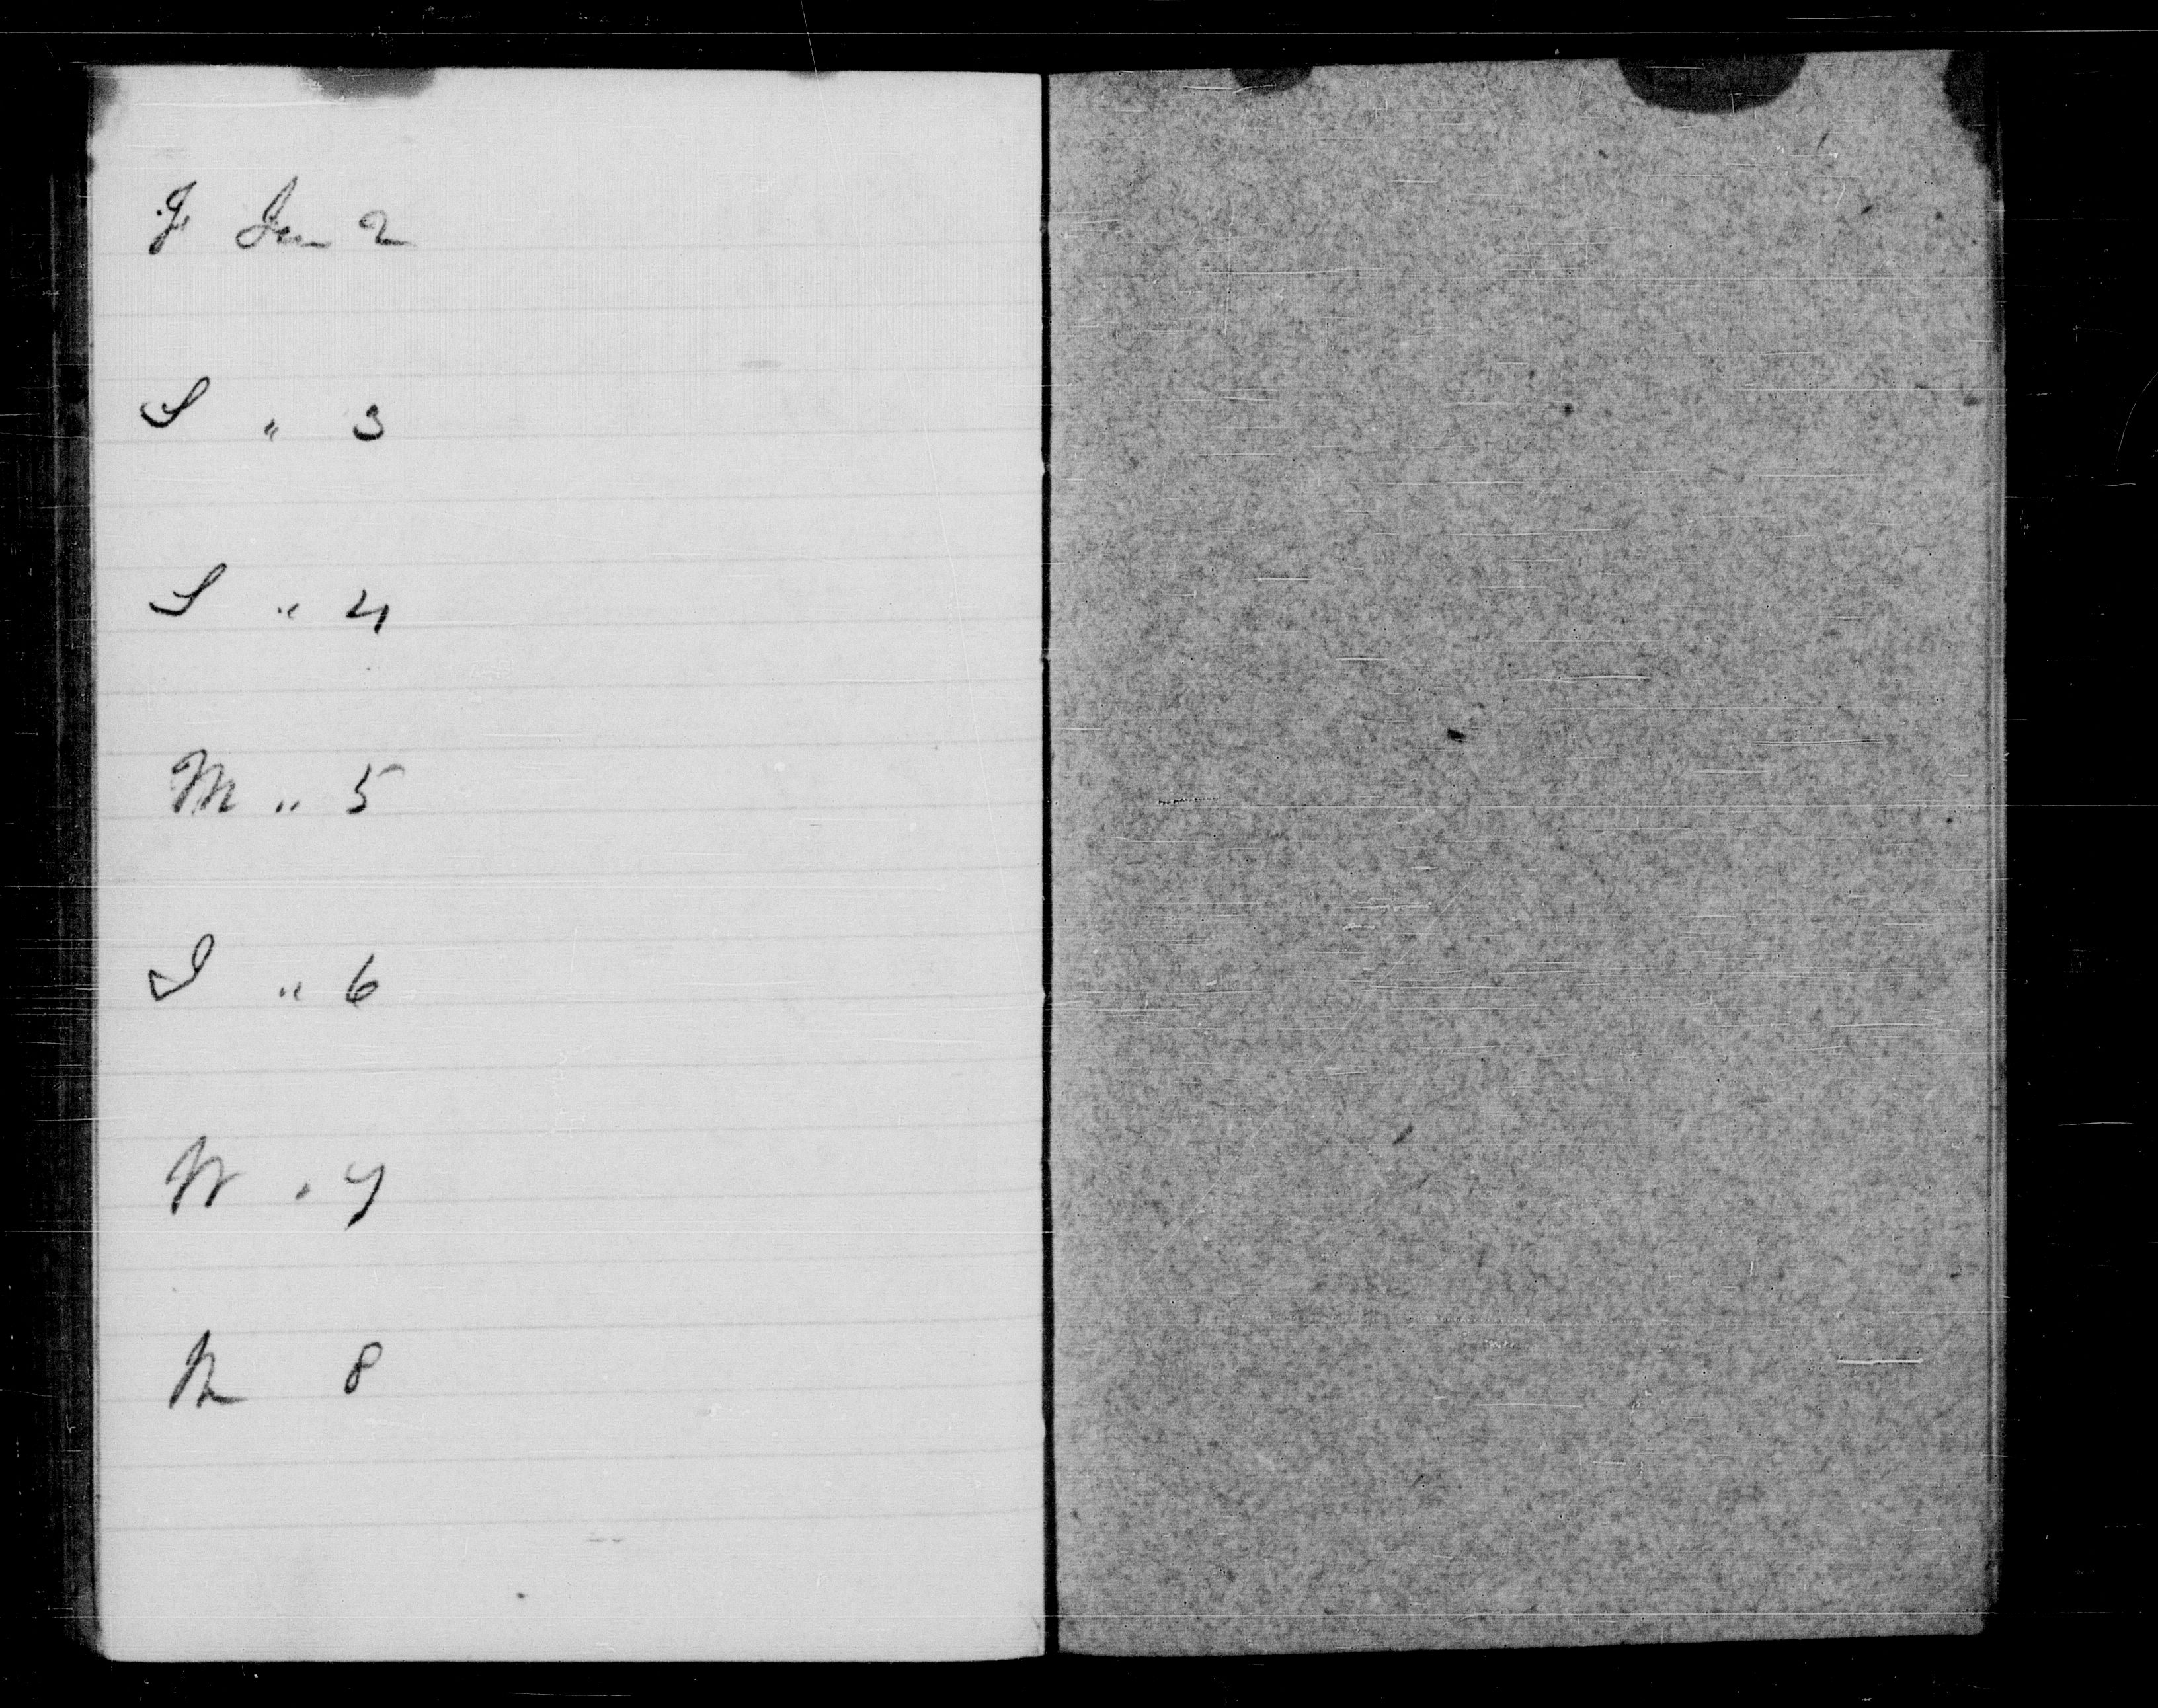 F Jan 2
S " 3
S " 4
M " 5
T " 6
W " 7
Th 8